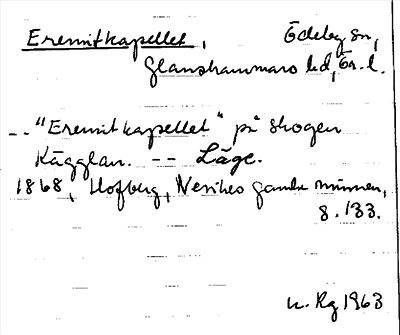 Eremitkapellet, Ödeby sn,
Glanshammars hd, Ör. l.
-- "Eremitkapellet" på skogen
Käglan. -- Läge.
1868, Hofberg, Nerikes gamla minnen,
s. 133.
1963